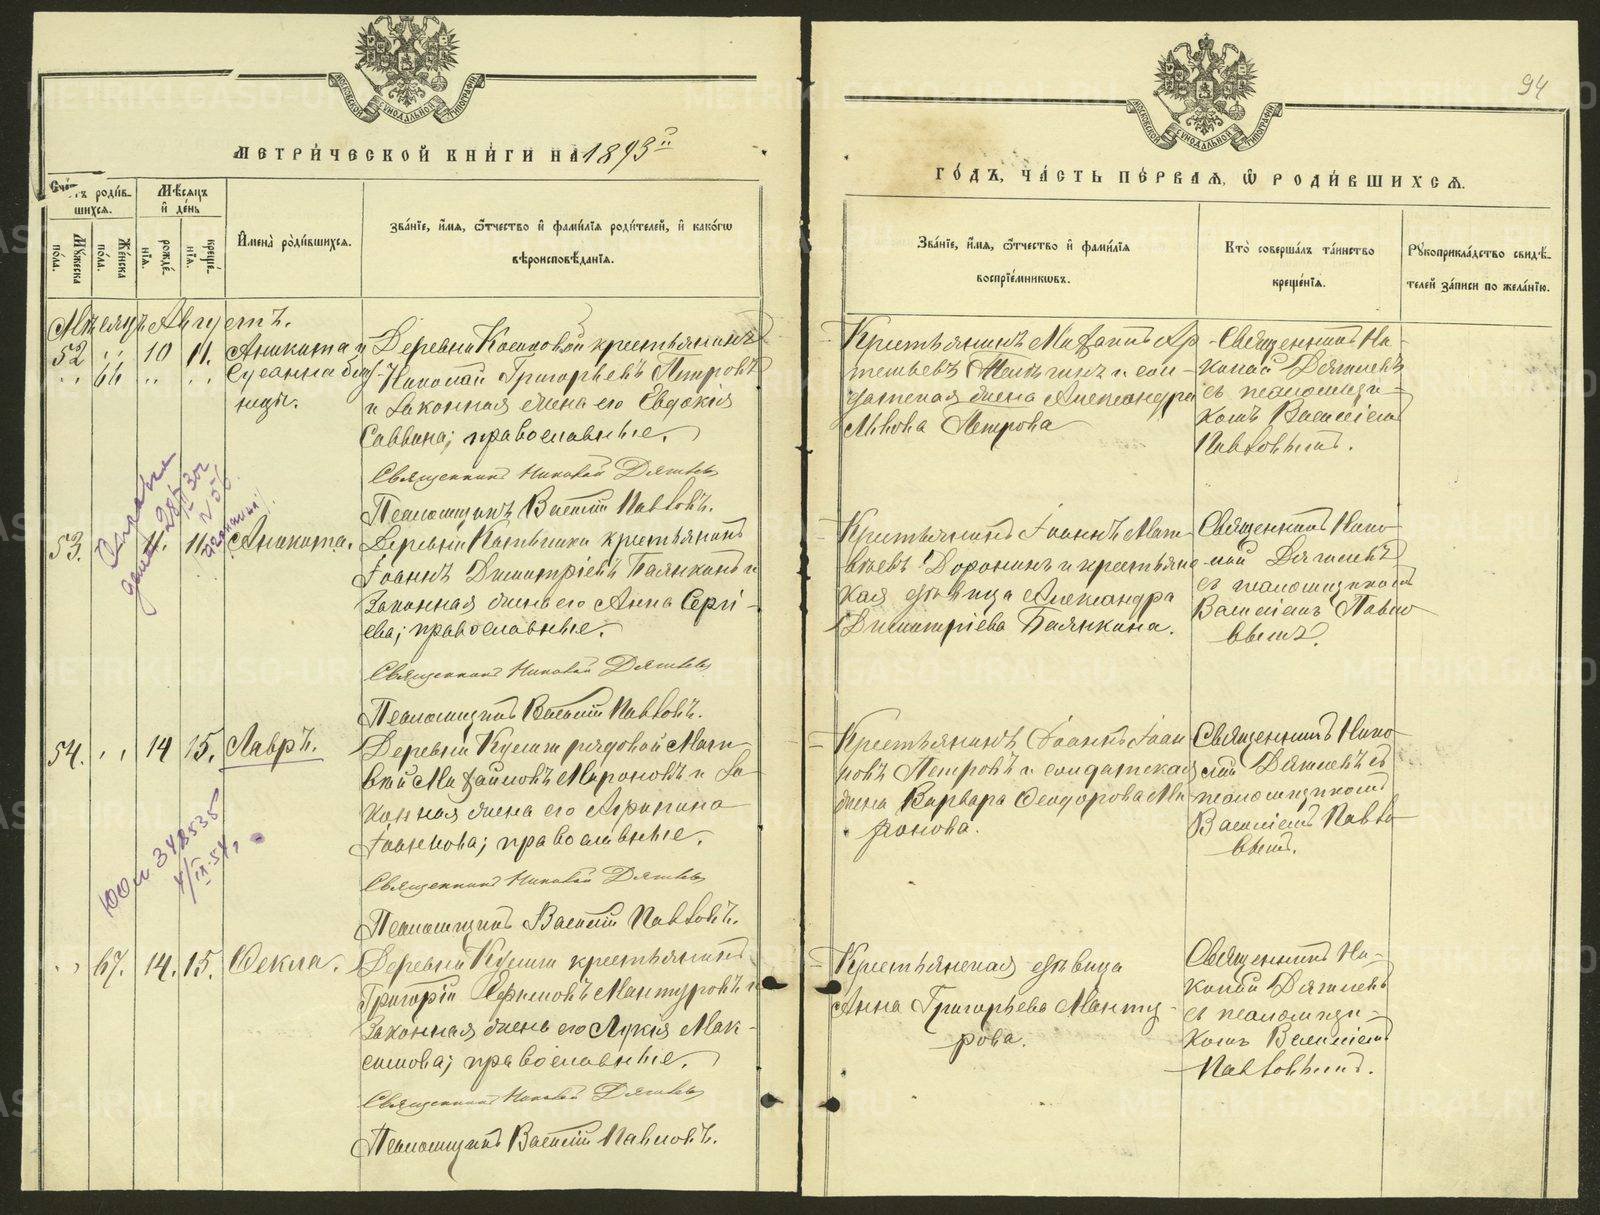 94
МОСКОВСКОЙ СѴНОДАЛЬНОЙ ТИПОГРАФІИ
МЕТРИ́ЧЕСКОЙ КНИ́ГИ НА 1893й
Счетъ роди́в-
шихся.
Мѣсяцъ
и҆ де́нь
Му́жеска по́ла.
Же́нска по́ла.
рожде́нїѧ.
креще́нїѧ.
И҆мена̀ роди́вшихся.
Зва́нїе, и҆́мѧ, ѻ҆́тчество и҆ фами́лїѧ роди́телей, и҆ како́гѡ
вѣроисповѣ́данїѧ.
Мѣсяцъ Августъ.
52 " 10 11. Аникита и
" 66 " " Сусанна близ-
нецы.
Деревни Косиковой крестьянинъ
Николай Григорьевъ Петровъ
и законная жена его Евдокія
Саввина; православные.
Священникъ Николай Дягилевъ
Псаломщикъ Василій Павловъ.
53. 11. Аникита.
28/IV 30г
N 56
Деревни крестьянинъ
Іоаннъ Димитріевъ Баянкинъ и
законная жена его Анна Серги-
ева; православные.
Священникъ Николай Дягилевъ
Псаломщикъ Василій Павловъ.
54. " 14 15. Лавръ.
ЮО № 348535
4/IX-54г
Деревни Кулиги рядовой Мат-
вей Михайловъ Мироновъ и за-
конная жена его Агрипина
Іоаннова; православные.
Священникъ Николай Дягилевъ
Псаломщикъ Василій Павловъ.
" 67. 14. 15. Ѳекла.
Деревни Кулиги крестьянинъ
Григорій Ефимовъ Мантуровъ и
законная жена его Лукія Мак-
симова; православные.
Священникъ Николай Дягилевъ
Псаломщикъ Василій Павловъ.
МОСКОВСКОЙ СѴНОДАЛЬНОЙ ТИПОГРАФІИ
ГО́ДЪ, ЧА́СТЬ ПЕ́РВАѦ, Ѡ҆ РОДИ́ВШИХСѦ.
Зва́нїе, и҆́мѧ, ѻ҆́тчество и҆ фами́лїѧ
воспрїе́мникѡвъ.
Кто̀ соверша́лъ та́инство
креще́нїѧ.
Рꙋкоприкла́дство свидѣ́-
телей за́писи по жела́нїю.
Крестьянинъ Михаилъ Ар-
темьевъ и сол-
датская жена Александра
Львова Петрова
Священникъ Ни-
колай Дягилевъ
съ псаломщи-
комъ Василіемъ
Павловымъ.
Крестьянинъ Іоаннъ Мат-
вѣевъ Доронинъ и крестьянс-
кая дѣвица Александра
Димитріева Баянкина.
Священникъ Нико-
лай Дягилевъ
съ псаломщикомъ
Василіемъ Павло-
вымъ.
Крестьянинъ Іоаннъ Іоан-
новъ Петровъ и солдатская
жена Варвара Ѳеодорова Ми-
ронова.
Священникъ Нико-
лай Дягилевъ съ
псаломщикомъ
Василіемъ Павло-
вымъ.
Крестьянская дѣвица
Анна Григорьева Манту-
рова.
Священникъ Ни-
колай Дягилевъ
съ псаломщи-
комъ Василіемъ
Павловымъ.
METRIKI.GASO-URAL.RU